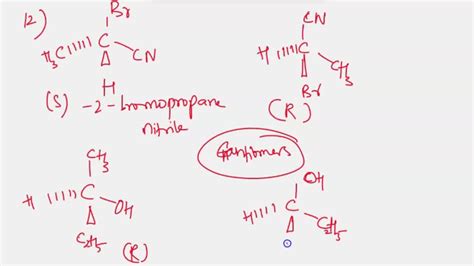 12)
Br
CH3 C CN
H
(S) -2-bromopropane
nitrile
CN
H C CH3
Br
(R)
Enantiomers
CH3
H C OH
C2H5
(R)
OH
H C C2H5